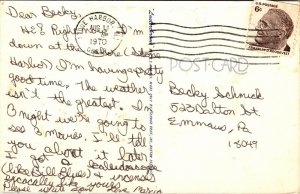 Dear Becky,
Hi! Right now I'm
down at the shore (Stone
Harbor). I'm having a pretty
good time. The weather
isn't the greatest. In
night we're going to
see 2 movies. I'll tell
you about it later
I got a kaleidoscope
(like Bill Blue's) & incense
especially for you.
Please write soon Love
HARBOR
AUG
1970
U.S. POSTAGE
6¢
POSTCARD
Becky Schuck
533 Dalton St
Emmaus, Pa
18049